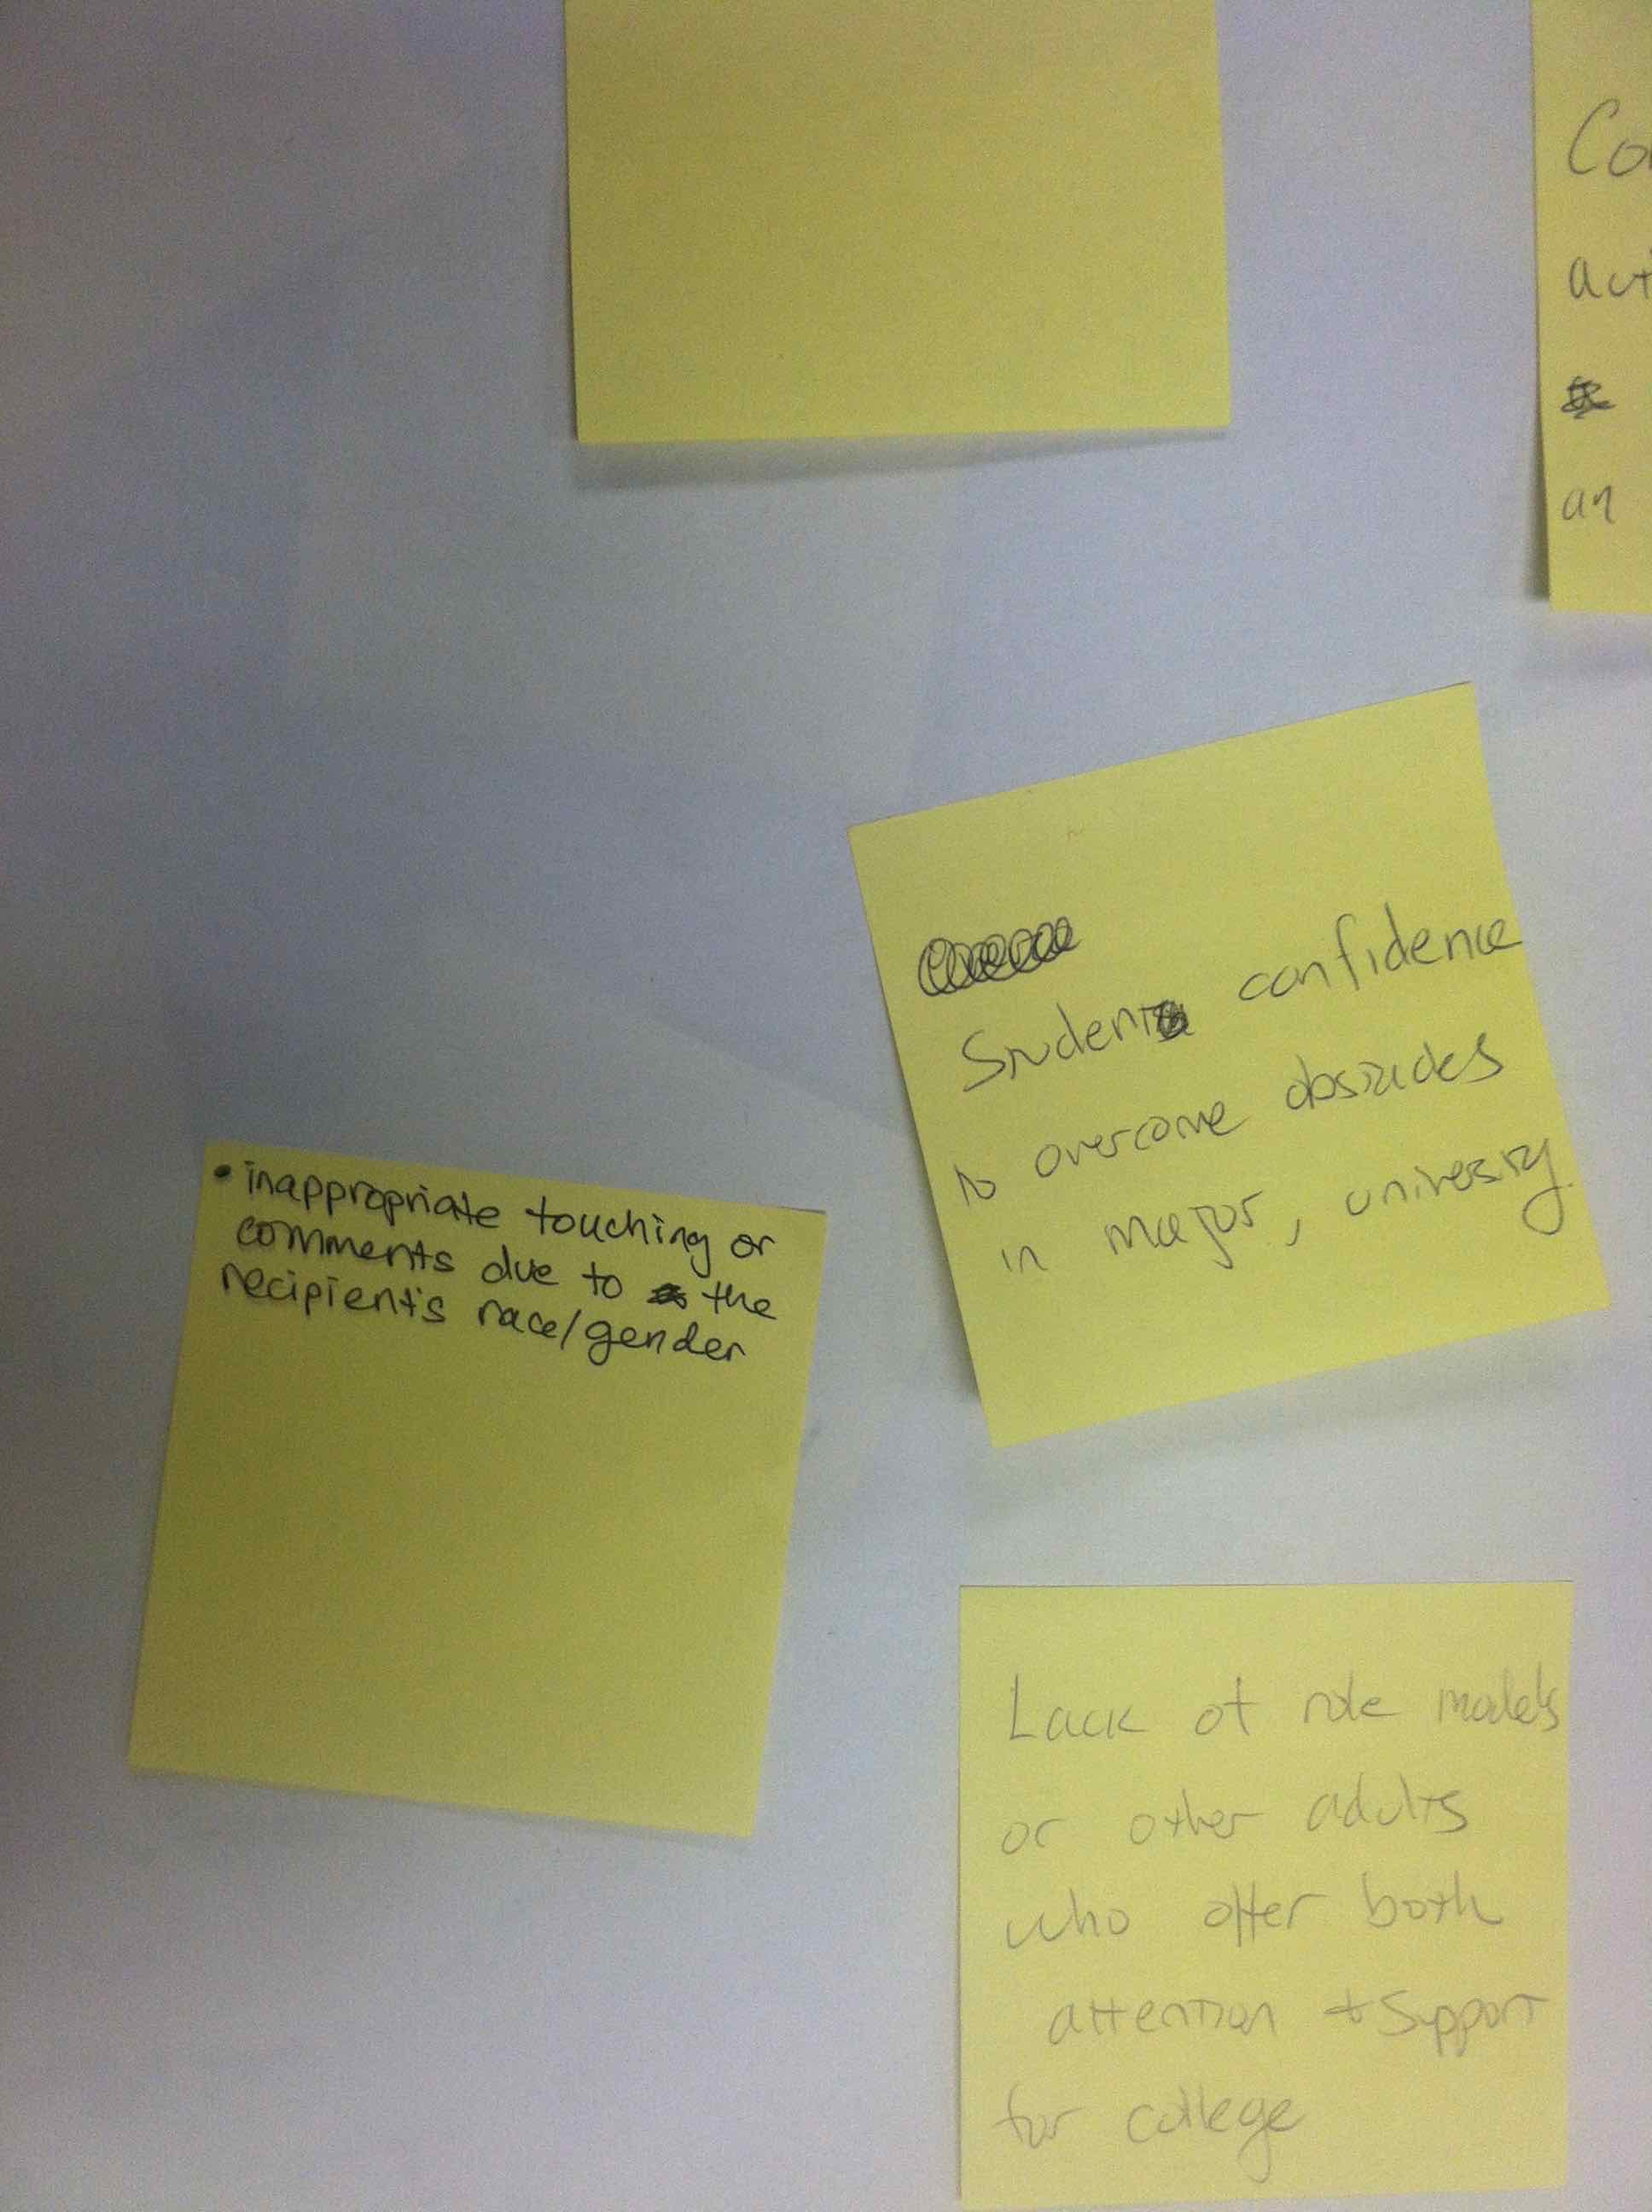 Co
act
an
Student confidence
to overcome obstacles
in major, university
• inappropriate touching or
comments due to the
recipient's race/gender
Lack of role models
or other adults
who offer both
attention + support
for college